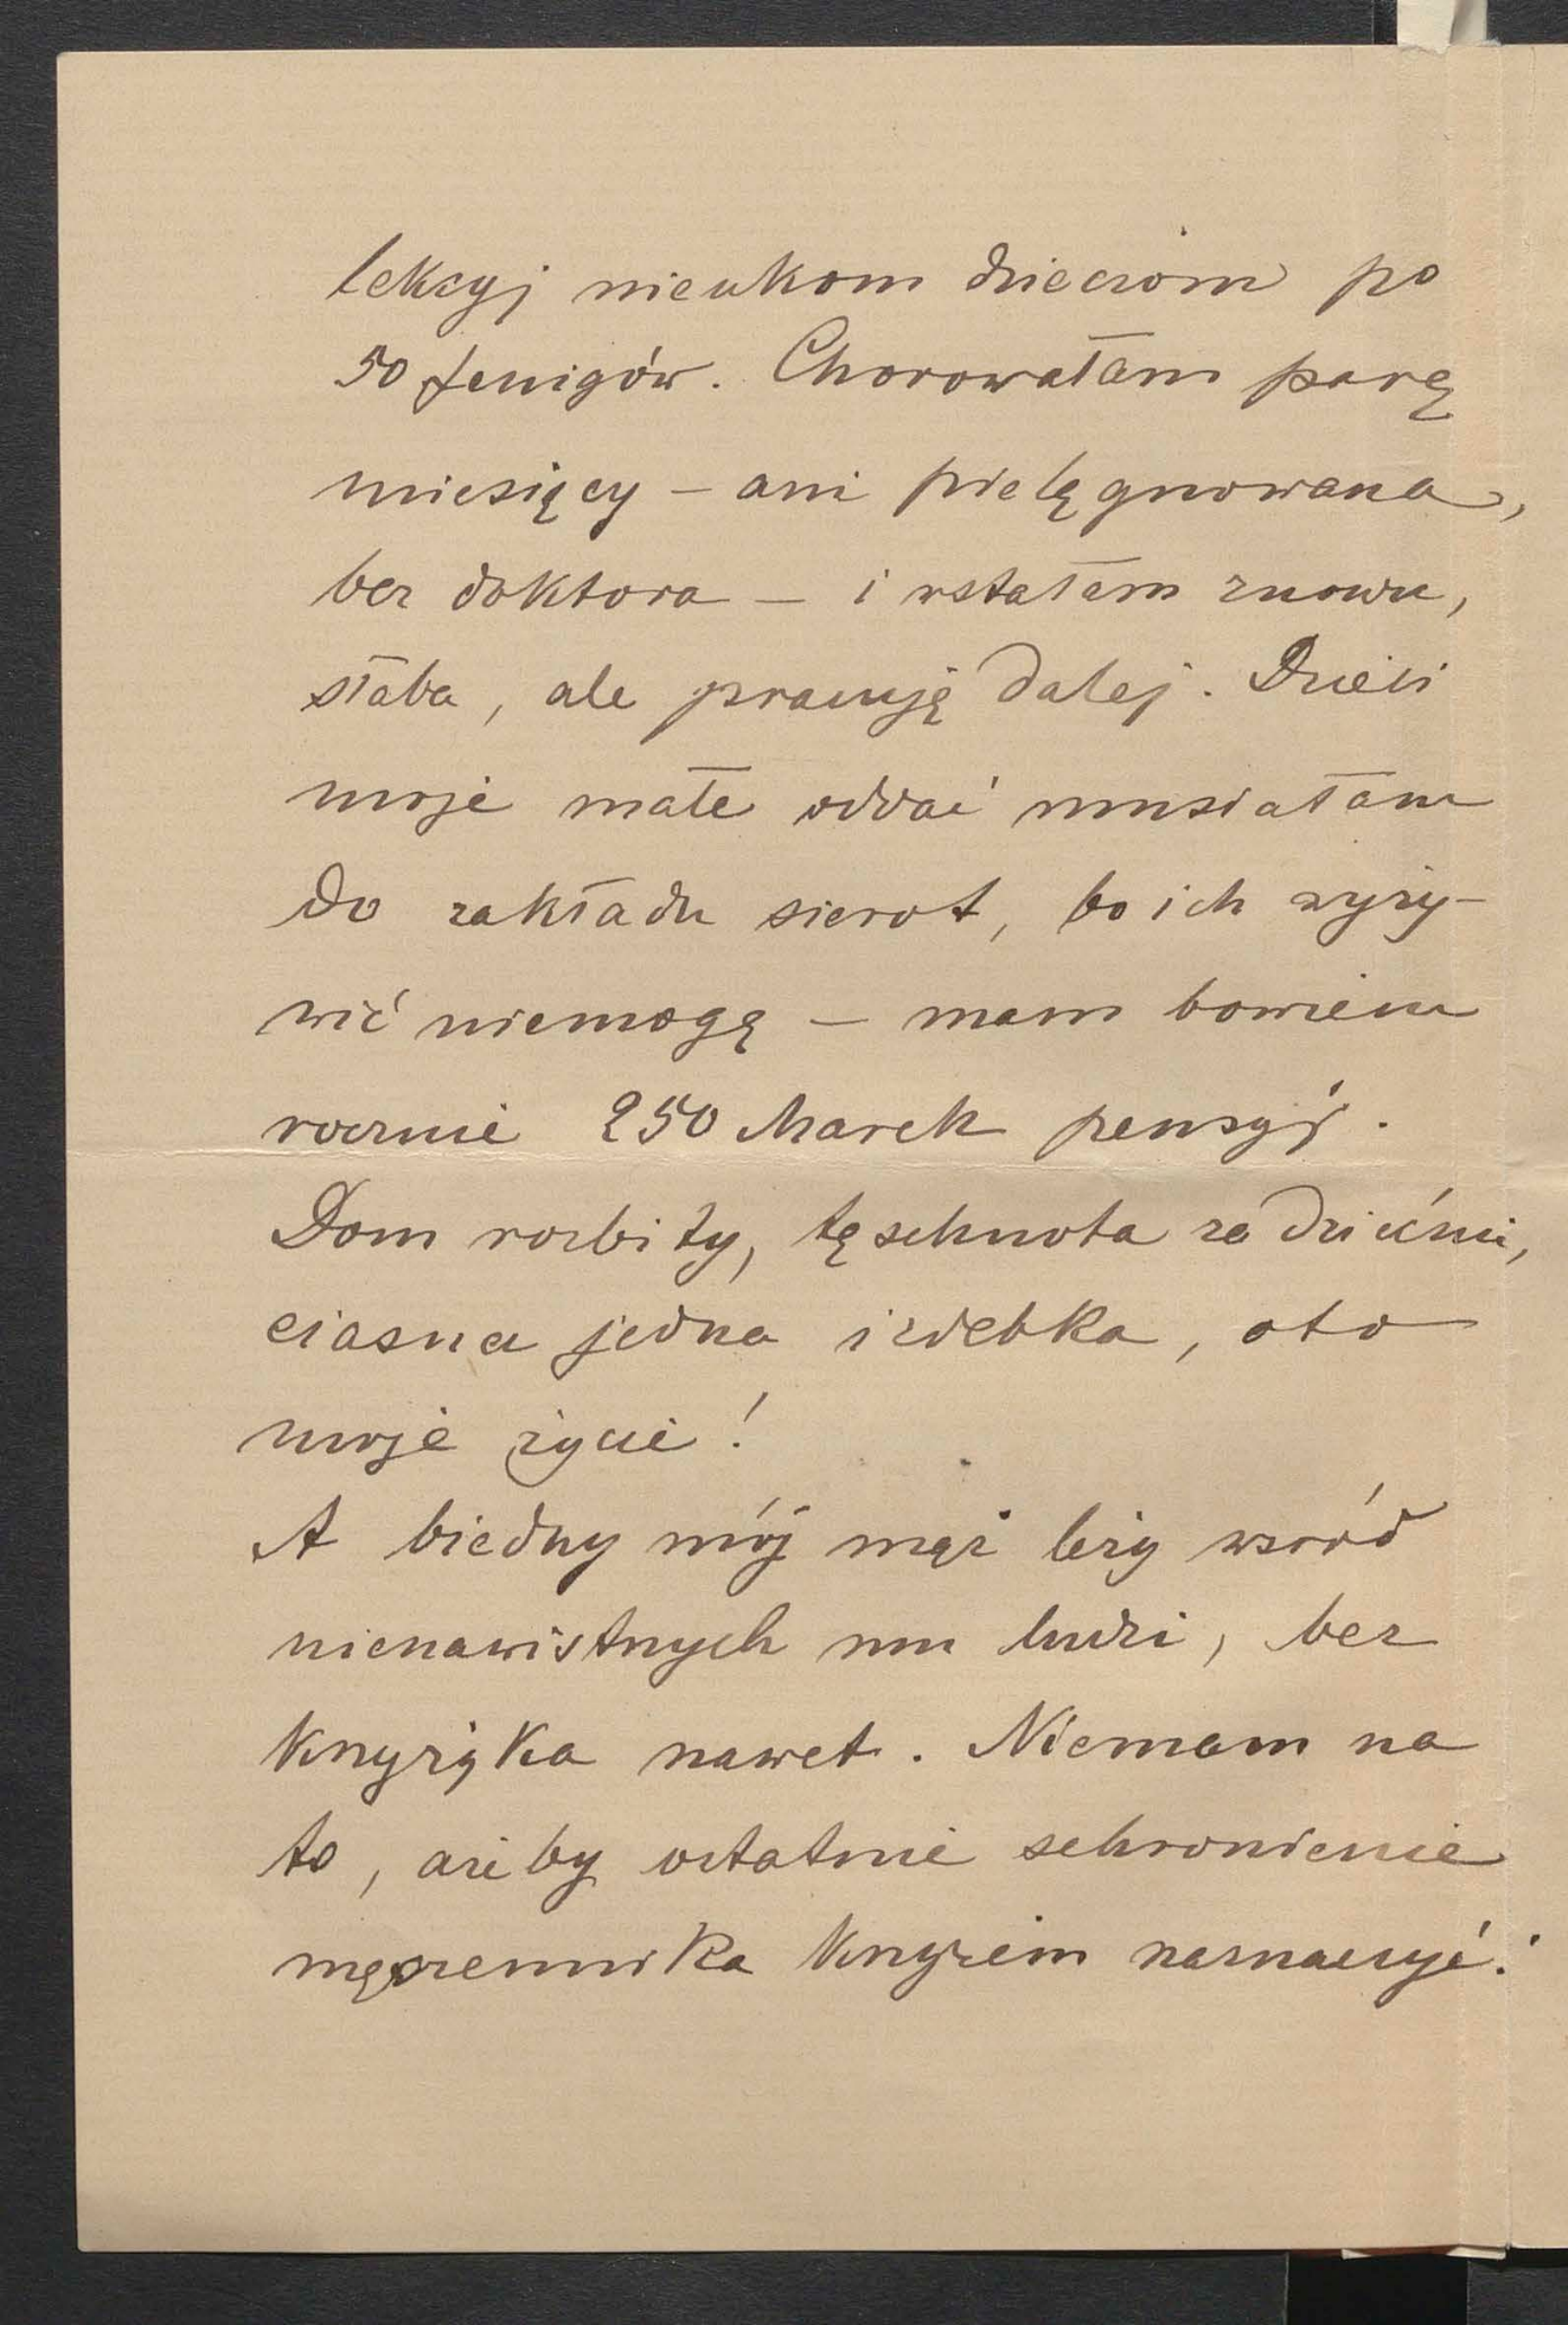 lekcyj nieukom dzieciom po
50 fenigów. Chorowałam parę
miesięcy – ani pielęgnowana,
bez doktora – i wstałam znowu,
słaba, ale pracuję dalej. Dzieci
moje małe oddać musiałam
do zakładu sierot, bo ich wyży-
wić niemogę – mam bowiem
rocznie 250 Marek pensyj.
Dom rozbity, tęschnota za dziećmi,
ciasna jedna izdebka, oto
moje życie!
A biedny mój mąż leży wsród
nienawistnych mu ludzi, bez
Knyżyka nawet. Niemam na
to, ażeby ostatnie schronienie
męczennika Knyżem naznaczyć.